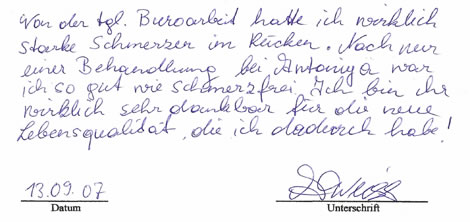 Von der tgl. Büroarbeit hatte ich wirklich
starke Schmerzen im Rücken. Nach nur
einer Behandlung bei Antonija war
ich so gut wie schmerzfrei. Ich bin ihr
wirklich sehr dankbar für die neue
Lebensqualität, die ich dadurch habe!
13.09.07
Datum Unterschrift